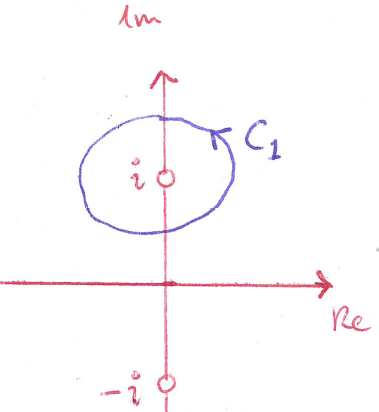 Im
C₁
i
Re
-i